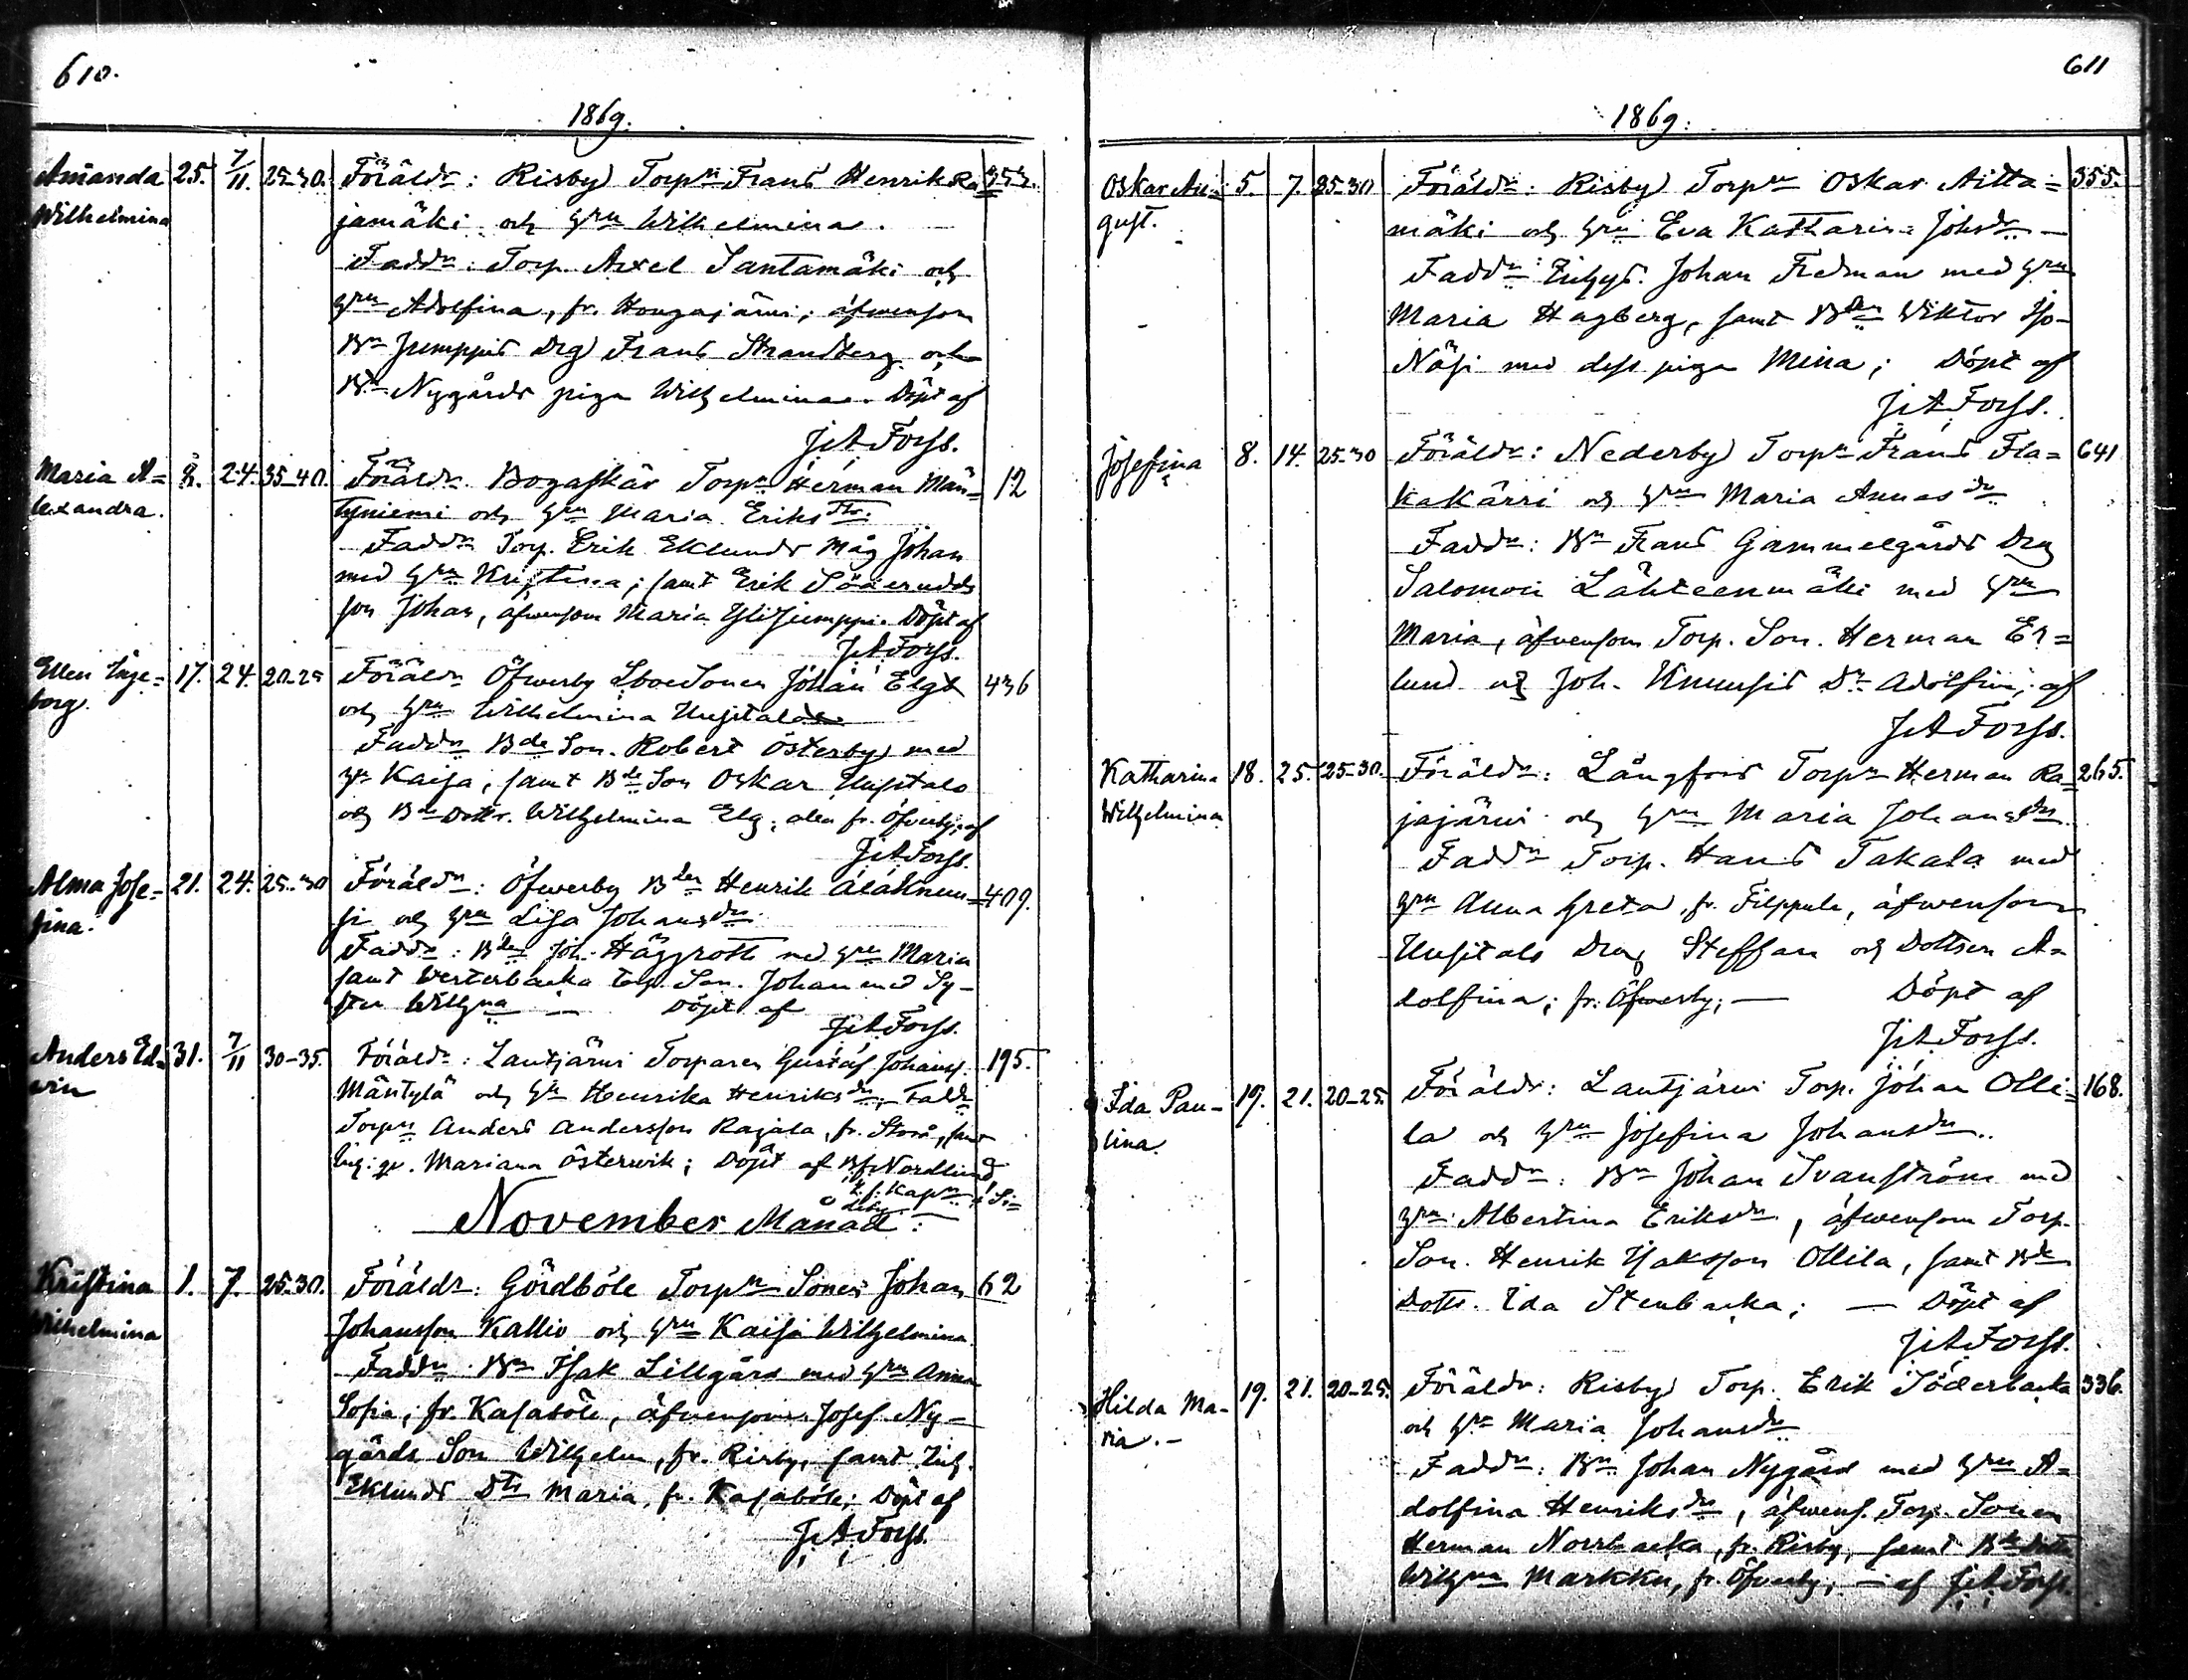 610.
1869.
Amanda 25. 7/11. 25-30. Föräldr: Risby Torpn Frans Henrik Ra= 353.
Wilhelmina jamäki och Hru Wilhelmina.
Faddr: Torp. Axel Santamäki och
Hru Adolfina, fr. Hongajärvi; äfvensom
Bn Jumppis Drg Frans Strandberg och
Bn Nygårds piga Wilhelmina. Döpt af
J.A. Forss.
Maria A= 2. 24. 35-40. Föräldr. Bogaskär Torpn Herman Män= 12
lexandra. tyniemi och Hru Maria Eriksdr.
Faddr Torp. Erik Eklunds Måg Johan
med Hru Kristina; samt Erik Söderudds
son Johan, äfvensom Maria Ylijumppi. Döpt af
J.A. Forss.
Ellen Inge= 17. 24. 20-25 Föräldr Öfverby Sonen Johan Elg 436
borg. och Hru Wilhelmina Uusitalo
Faddr Bde Son. Robert Österby med
Hru Kaisa, samt Bde Son Oskar Uusitalo
och Bde Dottr. Wilhelmina Elg, alla fr. Öfverby; af
J.A. Forss.
Alma Jose= 21. 24. 25-30 Föräldr: Öfverby Bden Henrik Alaknuu= 409.
fina. si och Hru Lisa Johansdr.
Faddr: Bden Joh. Häggroth med Hru Maria
samt Westerbacka Torp. Son. Johan med Sy-
ster Wilhna — Döpt af
J.A. Forss.
Anders Ed= 31. 7/11 30-35. Föräldr: Lautjärvi Torparen Gustaf Johanss. 195.
vin Mäntylä och Hru Henrika Henriksdr, Faddr
Torpn Anders Andersson Rajala, fr. Storå, samt
Inh: qv. Mariana Österwik; Döpt af Nordlund
t.f. Kapn i Si=
deby
November Månad:
Kristina 1. 7. 25-30. Föräldr: Gördböle Torpn Sonen Johan 62
Wilhelmina Johansson Kallio och Hru Kaisa Wilhelmina.
Faddr Bn Isak Lillgård med Hru Anna
Sofia, fr. Kasaböle, äfvensom Josef Ny-
gårds Son Wilhelm, fr. Risby, samt Inh.
Eklunds Dtr Maria, fr. Kasaböle; Döpt af
J.A. Forss.
611
1869.
Oskar Au= 5. 7. 25-30 Föräldr: Risby Torpn Oskar Aitta= 355.
gust. mäki och Hru Eva Katharina Johsdr —
Faddr: Inhys. Johan Fredman med Hru
Maria Hagberg, samt Bden Wiktor Iso-
Näsi med dess piga Mina; Döpt af
J.A. Forss.
Josefina 8. 14. 25-30 Föräldr: Nederby Torpn Frans Fla= 641
kakärri och Hru Maria Annasdr
Faddr: Bn Frans Gammelgårds Drg
Salomon Lähteenmäki med Hru
Maria, äfvensom Torp. Son. Herman Er=
lund och Joh. Knuusis Dr Adolfin; af
J.A. Forss.
Katharina 18. 25. 25-30. Föräldr: Långfors Torpn Herman Ra= 265.
Wilhelmina jajärvi och Hru Maria Johansdr.
Faddr Torp. Hans Takala med
Hru Anna Greta, fr. Filppula, äfvensom
Uusitalo Dreng Steffan och Dottren A=
dolfina; fr. Öfverby; — Döpt af
J.A. Forss.
Ida Pau- 19. 21. 20-25. Föräldr: Lautjärvi Torp. Johan Olli= 168.
lina. la och Hru Josefina Johansdr.
Faddr: Bn Johan Svanström med
Hru Albertina Eriksdr, äfvensom Torp.
Son. Henrik Isaksson Ollila, samt Bde
Dottr. Ida Stenbacka; — Döpt af
J.A. Forss.
Hilda Ma- 19. 21. 20-25. Föräldr: Risby Torp. Erik Söderbacka 336.
ria. - och Hru Maria Johansdr
Faddr: Bn Johan Nygård med Hru A=
dolfina Henriksdr, äfvens. Torp. Sonen
Herman Norrbacka, fr. Risby, samt Bde Dottr
Wilhna Markku, fr. Öfverby; — af J.A. Forss.